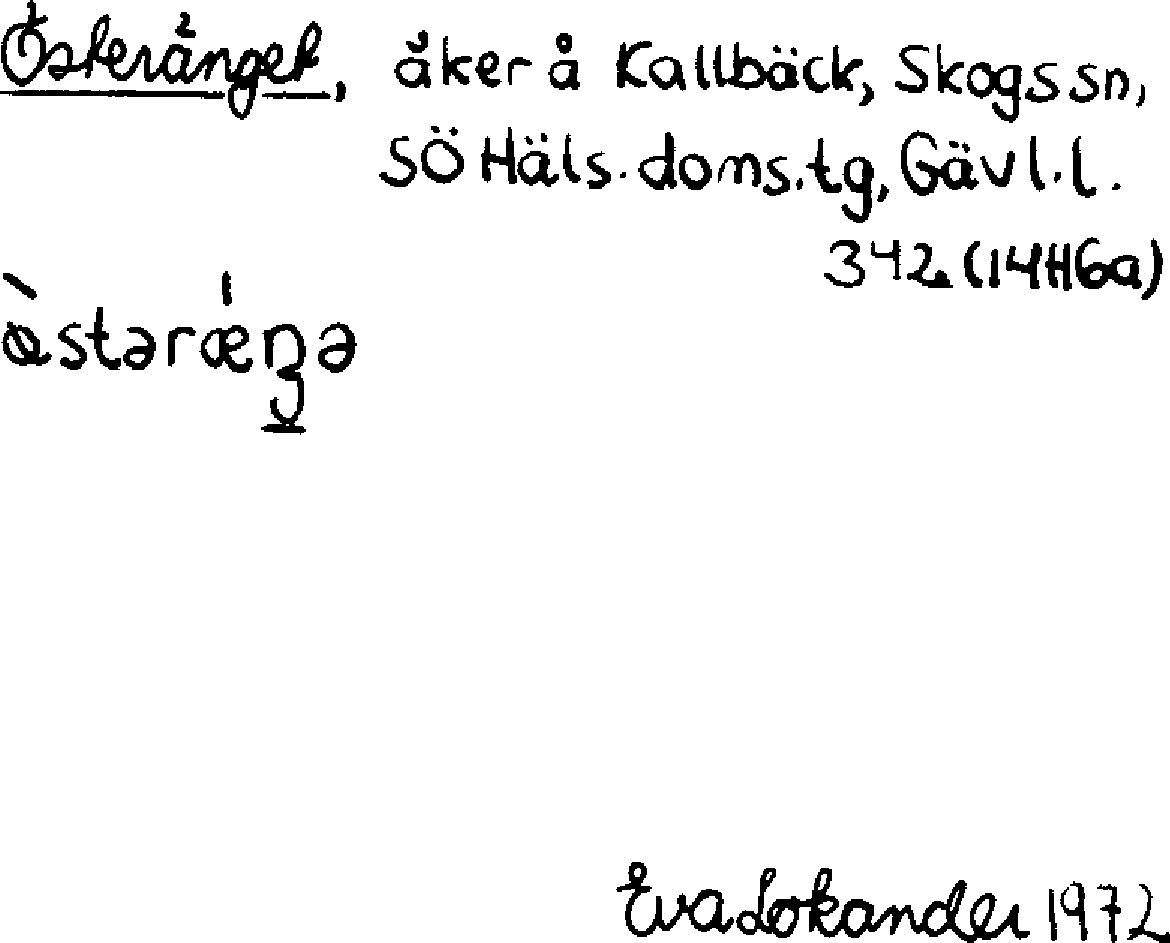 Österänget, åker å Kallbäck, Skogs sn,
SÖ Häls. doms.tg, Gävl.l.
342. (14H6a)
ö̀stərǽŋə
Eva Lokander 1972